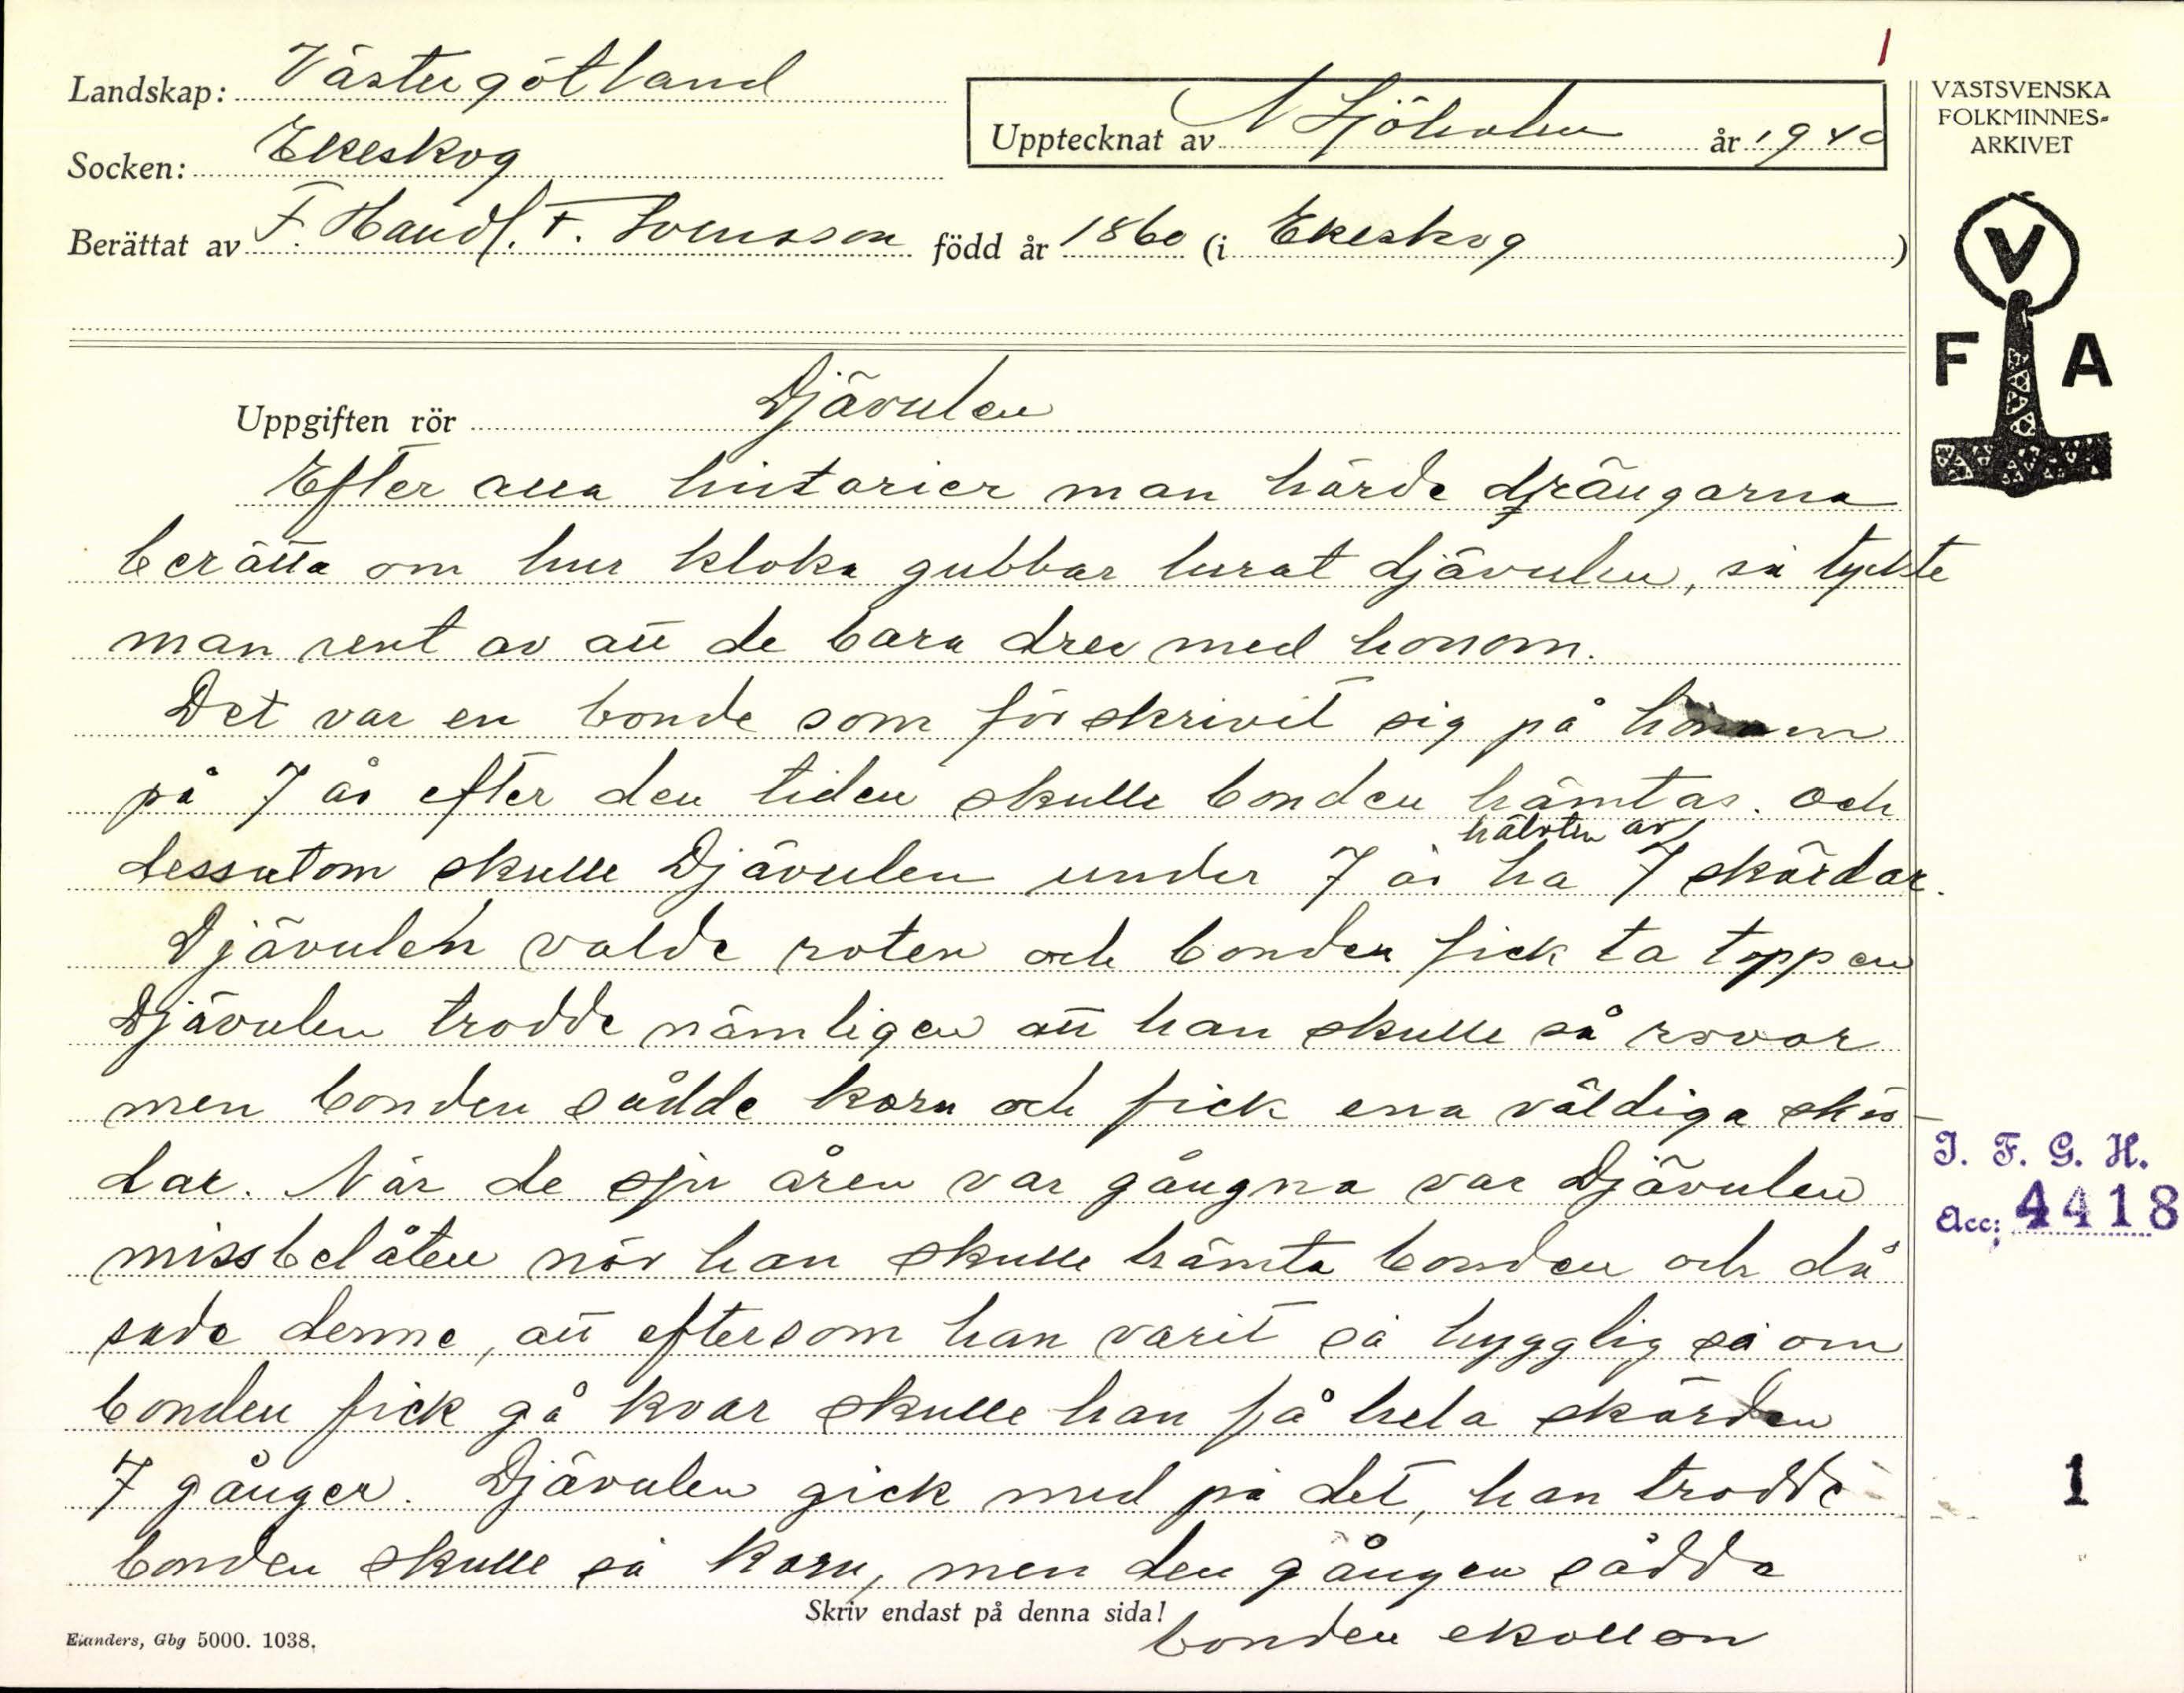 1
Landskap: Västergötland
Socken: Ekeskog
Upptecknat av N Sjöholm år 1940
Berättat av F. Handl. F. Svensson född år 1860 (i Ekeskog )
VÄSTSVENSKA
FOLKMINNES-
ARKIVET
V
F A
Uppgiften rör Djävulen
Efter alla historier man hörde drängarna
berätta om hur kloka gubbar lurat djävulen, så tyckte
man rent av att de bara drev med honom.
Det var en bonde som förskrivit sig på honom
på 7 år efter den tiden skulle bonden hämtas. och
hälvten av
dessutom skulle Djävulen under 7 år ha 7 skördar.
Djävulen valde roten och bonden fick ta toppen
Djävulen trodde nämligen att han skulle så rovor
men bonden sådde korn och fick ena väldiga skör-
dar. När de sju åren var gångna var Djävulen
missbelåten när han skulle hämta bonden och då
sade denne, att eftersom han varit så hygglig så om
bonden fick gå kvar skulle han få hela skörden
7 gånger. Djävulen gick med på det, han trodde
bonden skulle så korn, men den gången sådda
bonden ekollon
Skriv endast på denna sida!
Elanders, Gbg 5000. 1038.
I. F. G. H.
Acc: 4418
1